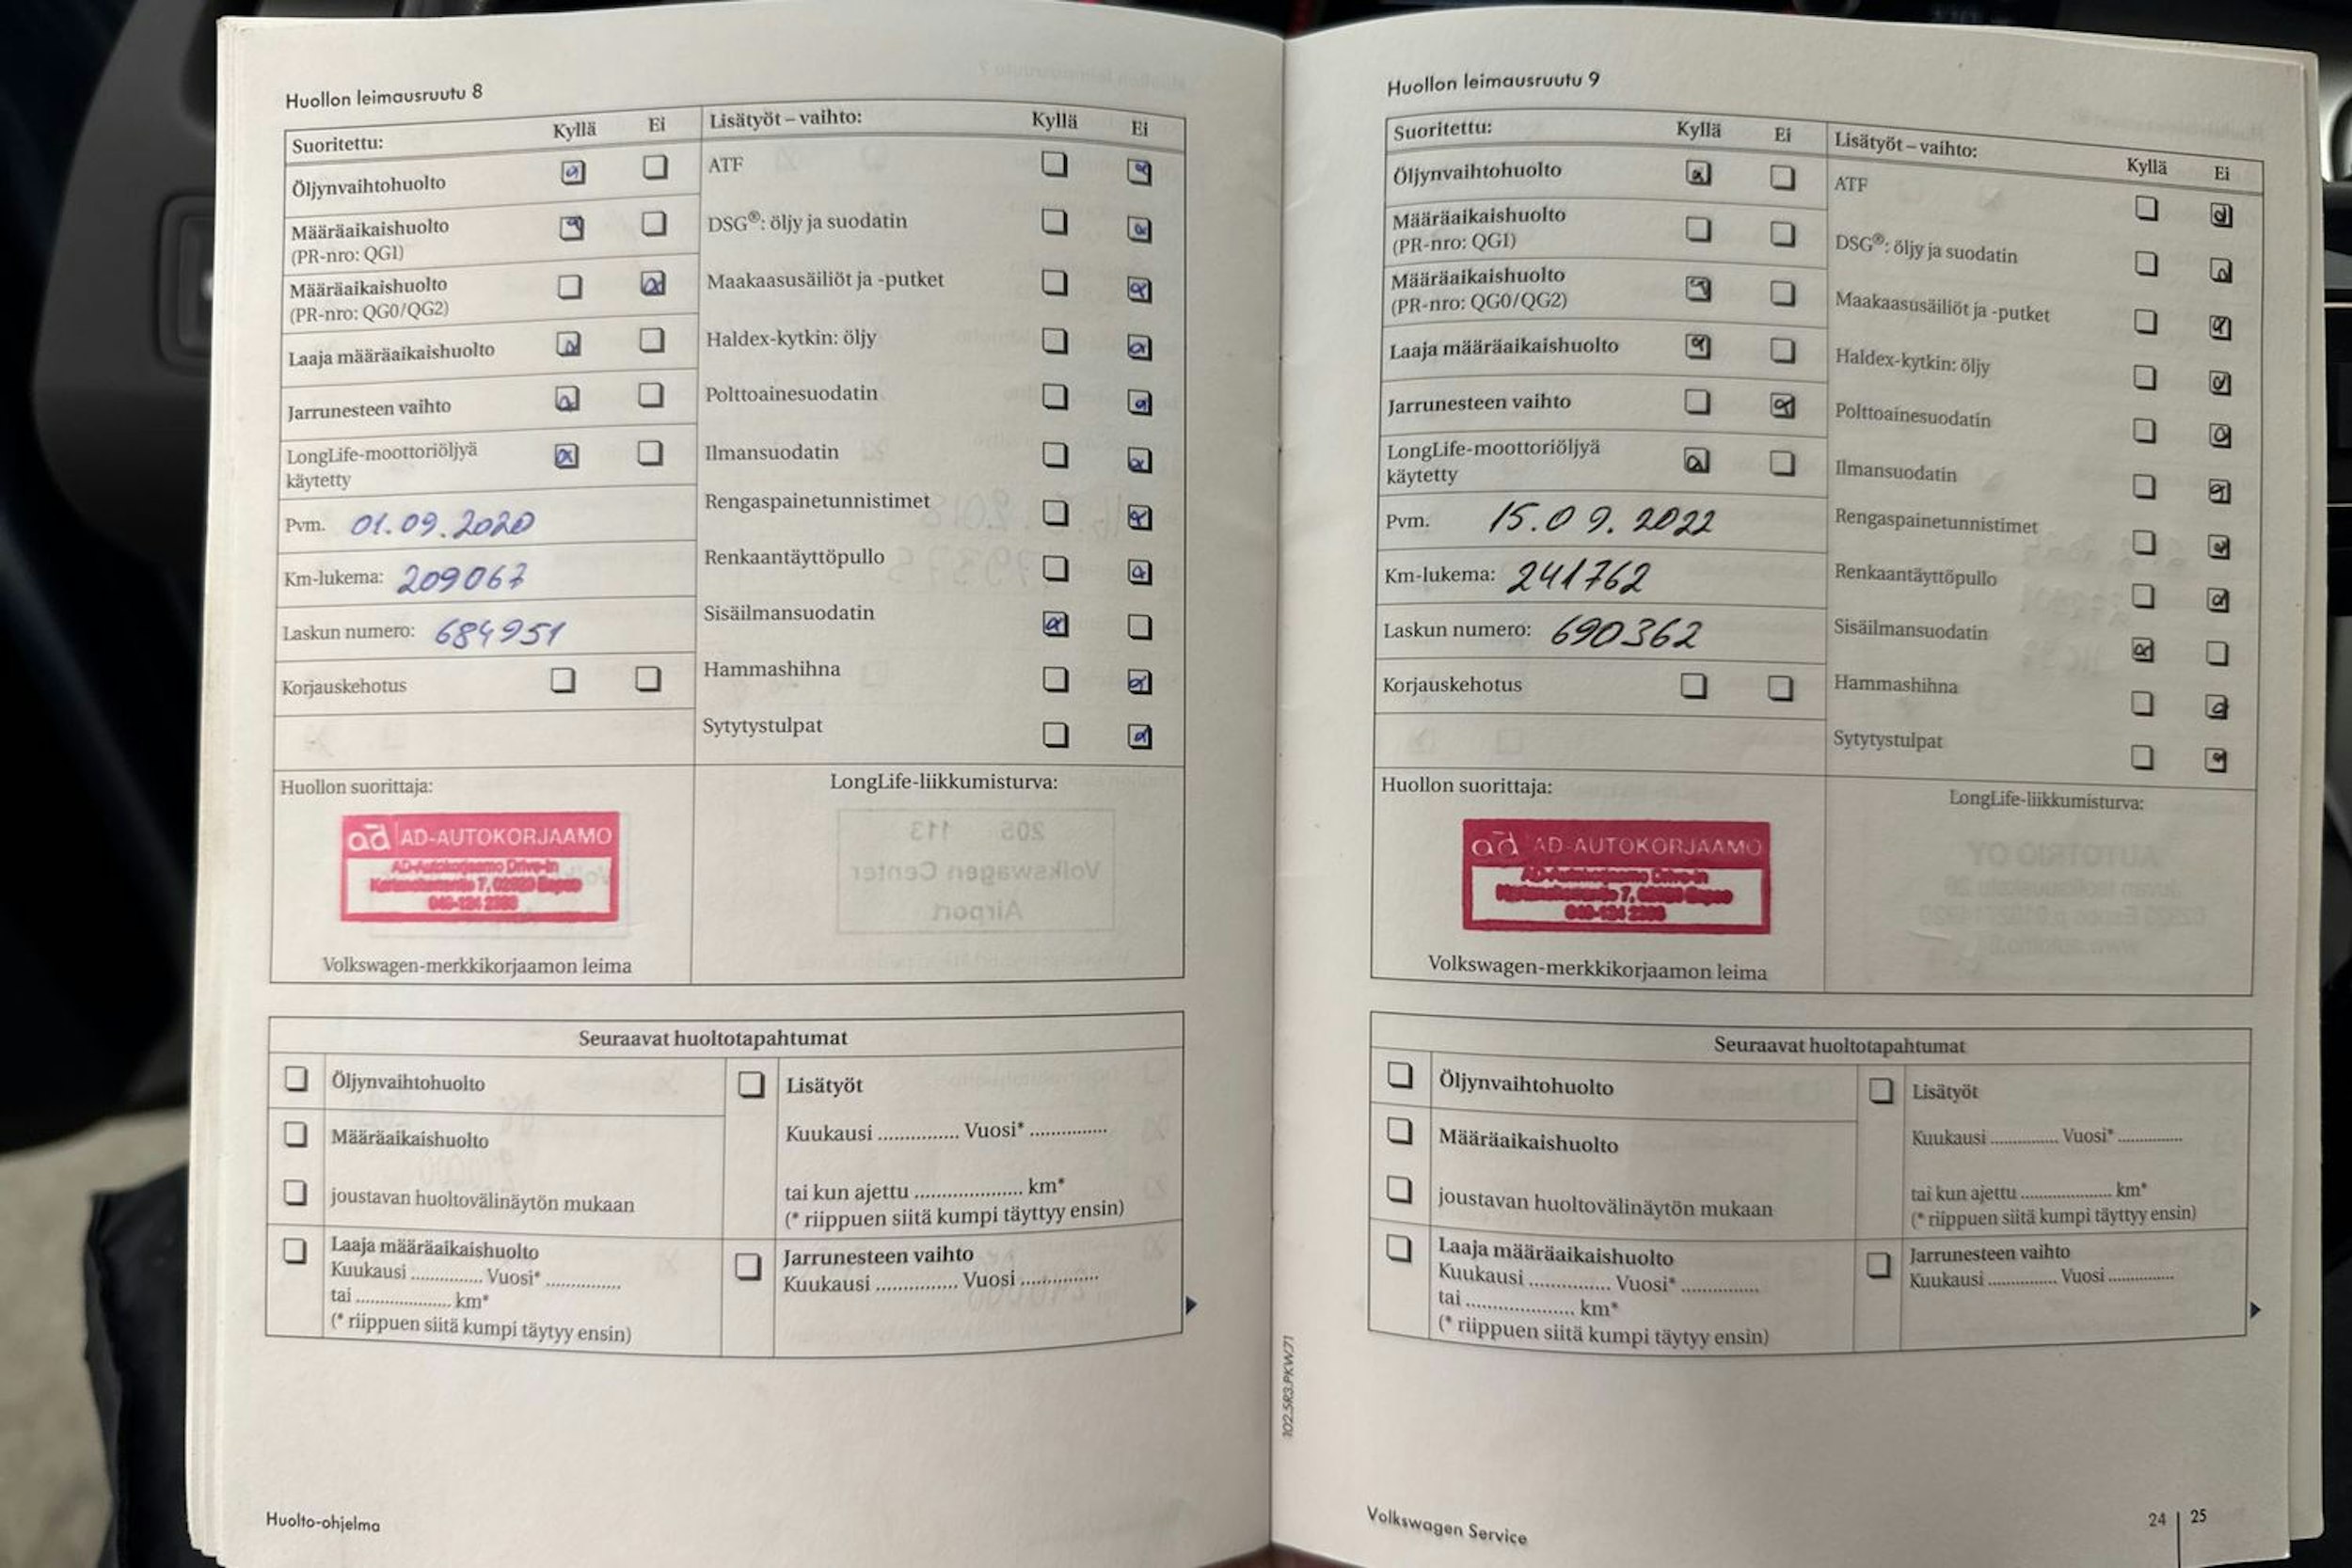 Huollon leimausruutu 8
Suoritettu: Kyllä Ei
Öljynvaihtohuolto
Määräaikaishuolto
(PR-nro: QG1)
Määräaikaishuolto
(PR-nro: QG0/QG2)
Laaja määräaikaishuolto
Jarrunesteen vaihto
LongLife-moottoriöljyä
käytetty
Pvm. 01.09.2020
Km-lukema: 209067
Laskun numero: 684951
Korjauskehotus
Lisätyöt – vaihto: Kyllä Ei
ATF
DSG®: öljy ja suodatin
Maakaasusäiliöt ja -putket
Haldex-kytkin: öljy
Polttoainesuodatin
Ilmansuodatin
Rengaspainetunnistimet
Renkaantäyttöpullo
Sisäilmansuodatin
Hammashihna
Sytytystulpat
Huollon suorittaja:
ad AD-AUTOKORJAAMO
AD-Autokorjaamo Drive-in
Volkswagen-merkkikorjaamon leima
LongLife-liikkumisturva:
Seuraavat huoltotapahtumat
Öljynvaihtohuolto
Määräaikaishuolto
joustavan huoltovälinäytön mukaan
Laaja määräaikaishuolto
Kuukausi ............... Vuosi* ...............
tai ................... km*
(* riippuen siitä kumpi täytyy ensin)
Lisätyöt
Kuukausi ............... Vuosi* ...............
tai kun ajettu .................... km*
(* riippuen siitä kumpi täyttyy ensin)
Jarrunesteen vaihto
Kuukausi ............... Vuosi ...............
Huolto-ohjelma
102.5R3.PKW.71
Huollon leimausruutu 9
Suoritettu: Kyllä Ei
Öljynvaihtohuolto
Määräaikaishuolto
(PR-nro: QG1)
Määräaikaishuolto
(PR-nro: QG0/QG2)
Laaja määräaikaishuolto
Jarrunesteen vaihto
LongLife-moottoriöljyä
käytetty
Pvm. 15.09.2022
Km-lukema: 241762
Laskun numero: 690362
Korjauskehotus
Lisätyöt – vaihto: Kyllä Ei
ATF
DSG®: öljy ja suodatin
Maakaasusäiliöt ja -putket
Haldex-kytkin: öljy
Polttoainesuodatin
Ilmansuodatin
Rengaspainetunnistimet
Renkaantäyttöpullo
Sisäilmansuodatin
Hammashihna
Sytytystulpat
Huollon suorittaja:
ad AD-AUTOKORJAAMO
AD-Autokorjaamo Drive-in
Volkswagen-merkkikorjaamon leima
LongLife-liikkumisturva:
Seuraavat huoltotapahtumat
Öljynvaihtohuolto
Määräaikaishuolto
joustavan huoltovälinäytön mukaan
Laaja määräaikaishuolto
Kuukausi ............... Vuosi* ...............
tai .................... km*
(* riippuen siitä kumpi täytyy ensin)
Lisätyöt
Kuukausi ............... Vuosi* ...............
tai kun ajettu .................... km*
(* riippuen siitä kumpi täyttyy ensin)
Jarrunesteen vaihto
Kuukausi ............... Vuosi ...............
Volkswagen Service
24 | 25